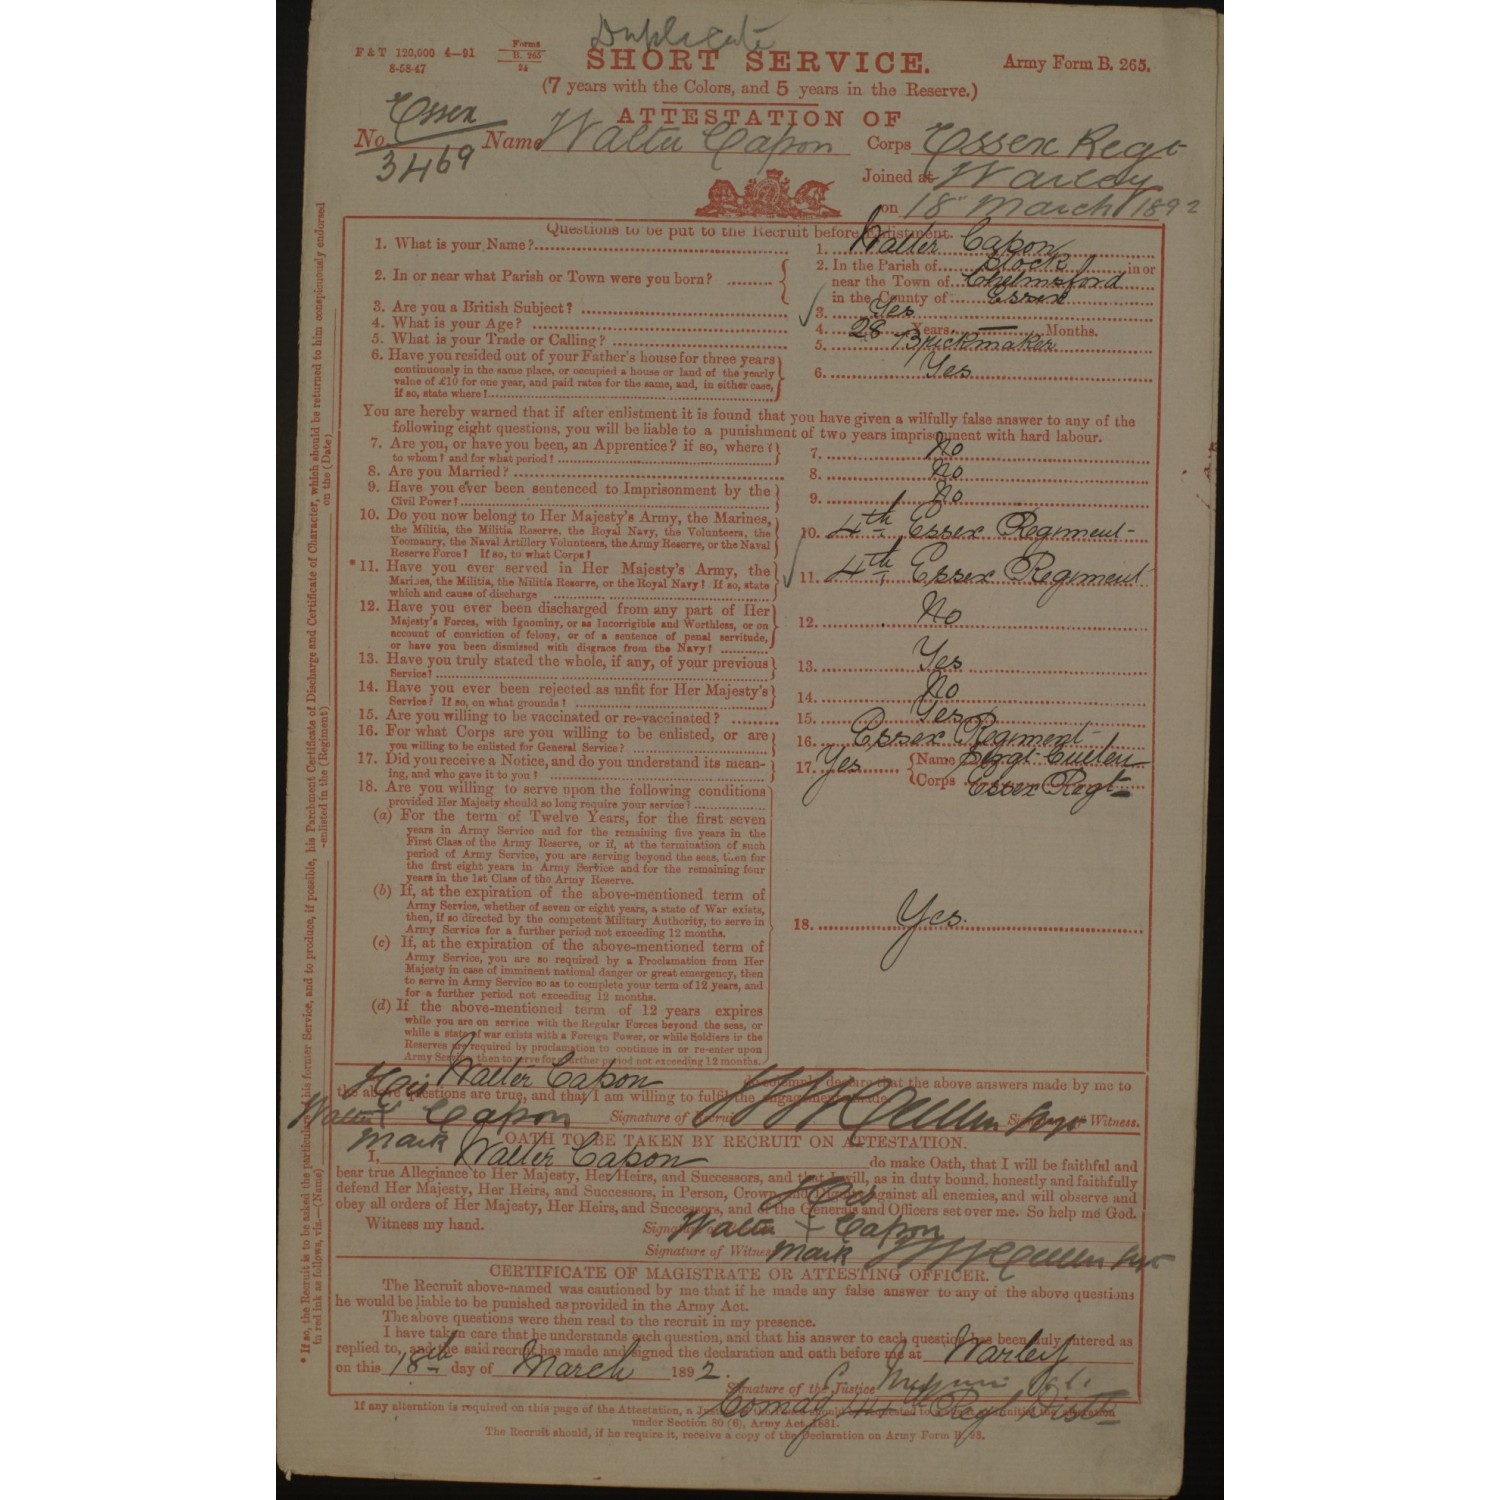 Duplicate
F & T 120,000 4—91
8-58-47
Forms
B. 265
24
SHORT SERVICE.
Army Form B. 265.
(7 years with the Colors, and 5 years in the Reserve.)
ATTESTATION OF
Essex
No. 3469 Name Walter Capon Corps Essex Regt
Joined at Warley
on 18" March 1892
Questions to be put to the Recruit before enlistment.
1. What is your Name? 1. Walter Capon
2. In or near what Parish or Town were you born? 2. In the Parish of Stock in or
near the Town of Chelmsford
in the County of Essex
3. Are you a British Subject? 3. Yes
4. What is your Age? 4. 28 Years — Months.
5. What is your Trade or Calling? 5. Brickmaker
6. Have you resided out of your Father's house for three years
continuously in the same place, or occupied a house or land of the yearly
value of £10 for one year, and paid rates for the same, and, in either case,
if so, state where? 6. Yes
You are hereby warned that if after enlistment it is found that you have given a wilfully false answer to any of the
following eight questions, you will be liable to a punishment of two years imprisonment with hard labour.
7. Are you, or have you been, an Apprentice? if so, where?
to whom? and for what period? 7. No
8. Are you Married? 8. No
9. Have you ever been sentenced to Imprisonment by the
Civil Power? 9. No
10. Do you now belong to Her Majesty's Army, the Marines,
the Militia, the Militia Reserve, the Royal Navy, the Volunteers, the
Yeomanry, the Naval Artillery Volunteers, the Army Reserve, or the Naval
Reserve Force? If so, to what Corps? 10. 4th Essex Regiment
* 11. Have you ever served in Her Majesty's Army, the
Marines, the Militia, the Militia Reserve, or the Royal Navy? If so, state
which and cause of discharge 11. 4th Essex Regiment
12. Have you ever been discharged from any part of Her
Majesty's Forces, with Ignominy, or as Incorrigible and Worthless, or on
account of conviction of felony, or of a sentence of penal servitude,
or have you been dismissed with disgrace from the Navy? 12. No
13. Have you truly stated the whole, if any, of your previous
Service? 13. Yes
14. Have you ever been rejected as unfit for Her Majesty's
Service? If so, on what grounds? 14. No
15. Are you willing to be vaccinated or re-vaccinated? 15. Yes
16. For what Corps are you willing to be enlisted, or are
you willing to be enlisted for General Service? 16. Essex Regiment
17. Did you receive a Notice, and do you understand its mean-
ing, and who gave it to you? 17. Yes Name Sergt Cullen
Corps Essex Regt
18. Are you willing to serve upon the following conditions
provided Her Majesty should so long require your service?
(a) For the term of Twelve Years, for the first seven
years in Army Service and for the remaining five years in the
First Class of the Army Reserve, or if, at the termination of such
period of Army Service, you are serving beyond the seas, then for
the first eight years in Army Service and for the remaining four
years in the 1st Class of the Army Reserve.
(b) If, at the expiration of the above-mentioned term of
Army Service, whether of seven or eight years, a state of War exists,
then, if so directed by the competent Military Authority, to serve in
Army Service for a further period not exceeding 12 months.
18. Yes.
(c) If, at the expiration of the above-mentioned term of
Army Service, you are so required by a Proclamation from Her
Majesty in case of imminent national danger or great emergency, then
to serve in Army Service so as to complete your term of 12 years, and
for a further period not exceeding 12 months.
(d) If the above-mentioned term of 12 years expires
while you are on service with the Regular Forces beyond the seas, or
while a state of war exists with a Foreign Power, or while Soldiers in the
Reserves are required by proclamation to continue in or re-enter upon
Army Service, then to serve for a further period not exceeding 12 months.
I, Walter Capon do solemnly declare that the above answers made by me to
the above questions are true, and that I am willing to fulfil the engagements made.
His
Walter X Capon Signature of Recruit Cullen Signature of Witness.
mark
OATH TO BE TAKEN BY RECRUIT ON ATTESTATION.
I, Walter Capon do make Oath, that I will be faithful and
bear true Allegiance to Her Majesty, Her Heirs, and Successors, and that I will, as in duty bound, honestly and faithfully
defend Her Majesty, Her Heirs, and Successors, in Person, Crown and Dignity against all enemies, and will observe and
obey all orders of Her Majesty, Her Heirs, and Successors, and of the Generals and Officers set over me. So help me God.
Witness my hand.
His
Signature of Recruit Walter X Capon
Signature of Witness mark Cullen
CERTIFICATE OF MAGISTRATE OR ATTESTING OFFICER.
The Recruit above-named was cautioned by me that if he made any false answer to any of the above questions
he would be liable to be punished as provided in the Army Act.
The above questions were then read to the recruit in my presence.
I have taken care that he understands each question, and that his answer to each question has been duly entered as
replied to, and the said recruit has made and signed the declaration and oath before me at Warley
on this 18th day of March 1892.
Signature of the Justice
Comdg 44th Regl Distt
If any alteration is required on this page of the Attestation, a
under Section 80 (6), Army Act, 1881.
The Recruit should, if he require it, receive a copy of the Declaration on Army Form B.
* If so, the Recruit is to be asked the particulars of his former Service, and to produce, if possible, his Parchment Certificate of Discharge and Certificate of Character, which should be returned to him conspicuously endorsed
in red ink as follows, viz.—(Name) enlisted in the (Regiment) on the (Date)